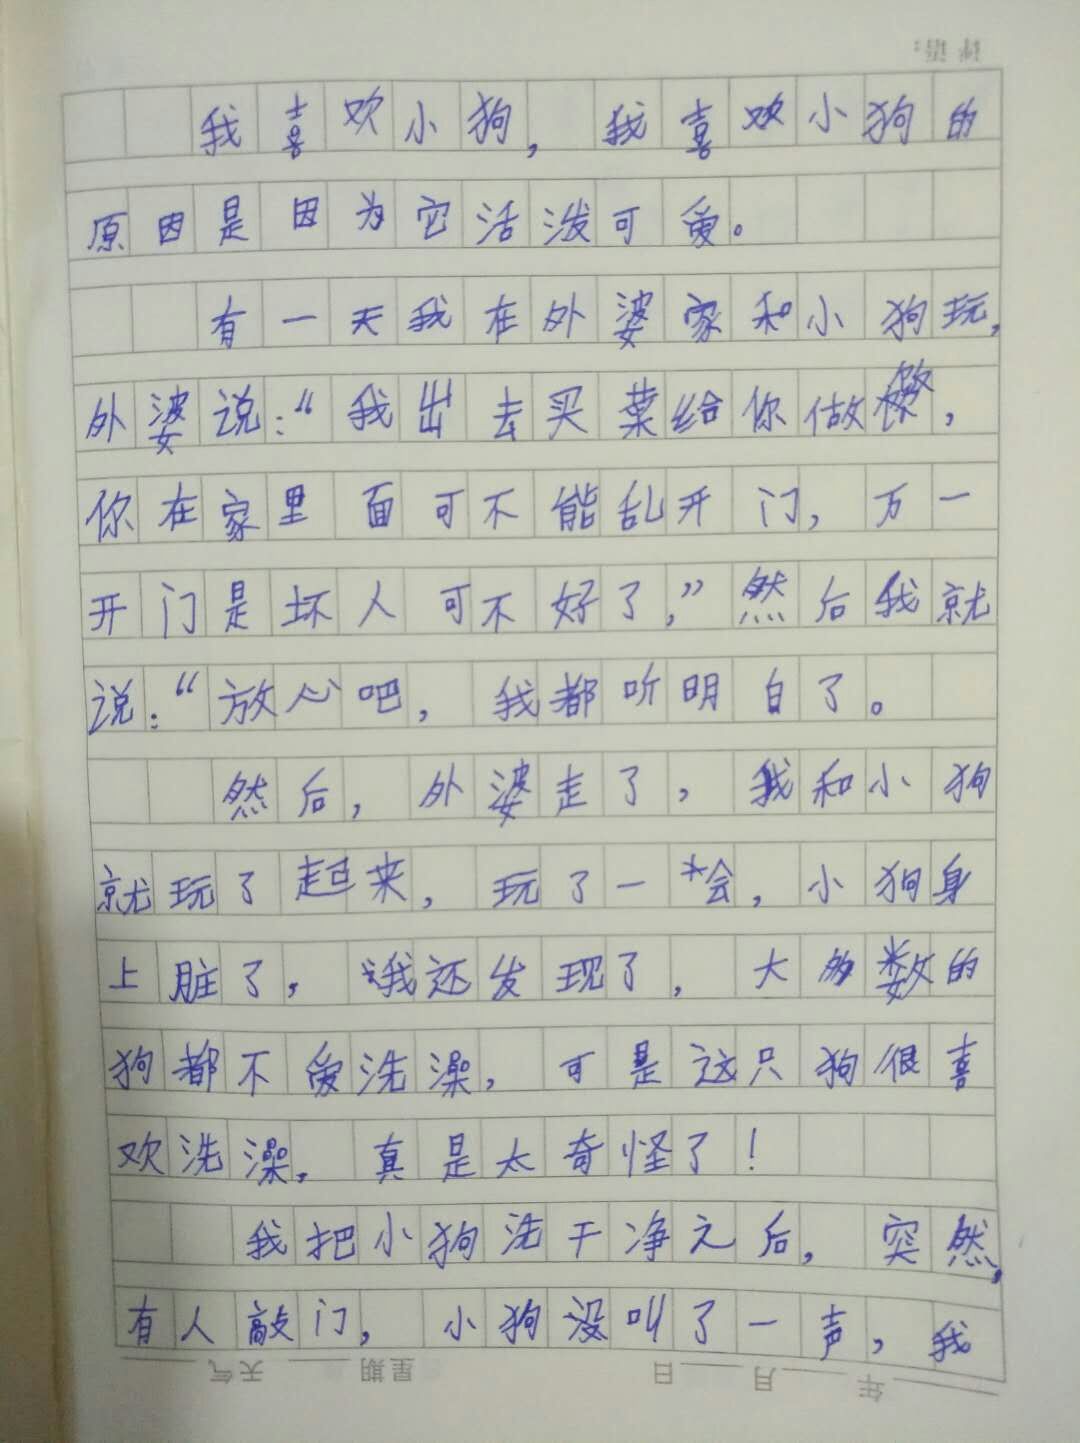 我喜欢小狗，我喜欢小狗的
原因是因为它活泼可爱。
有一天我在外婆家和小狗玩，
外婆说：“我出去买菜给你做，
你在家里面可不能乱开门，万一
开门是坏人可不好了，”然后我就
说：“放心吧，我都听明白了。
然后，外婆走了，我和小狗
就玩了起来，玩了一会，小狗身
上脏了，我还发现了，大多数的
狗都不爱洗澡，可是这只狗很喜
欢洗澡，真是太奇怪了！
我把小狗洗干净之后，突然，
有人敲门，小狗没叫了一声，我
年 月 日 星期 天气